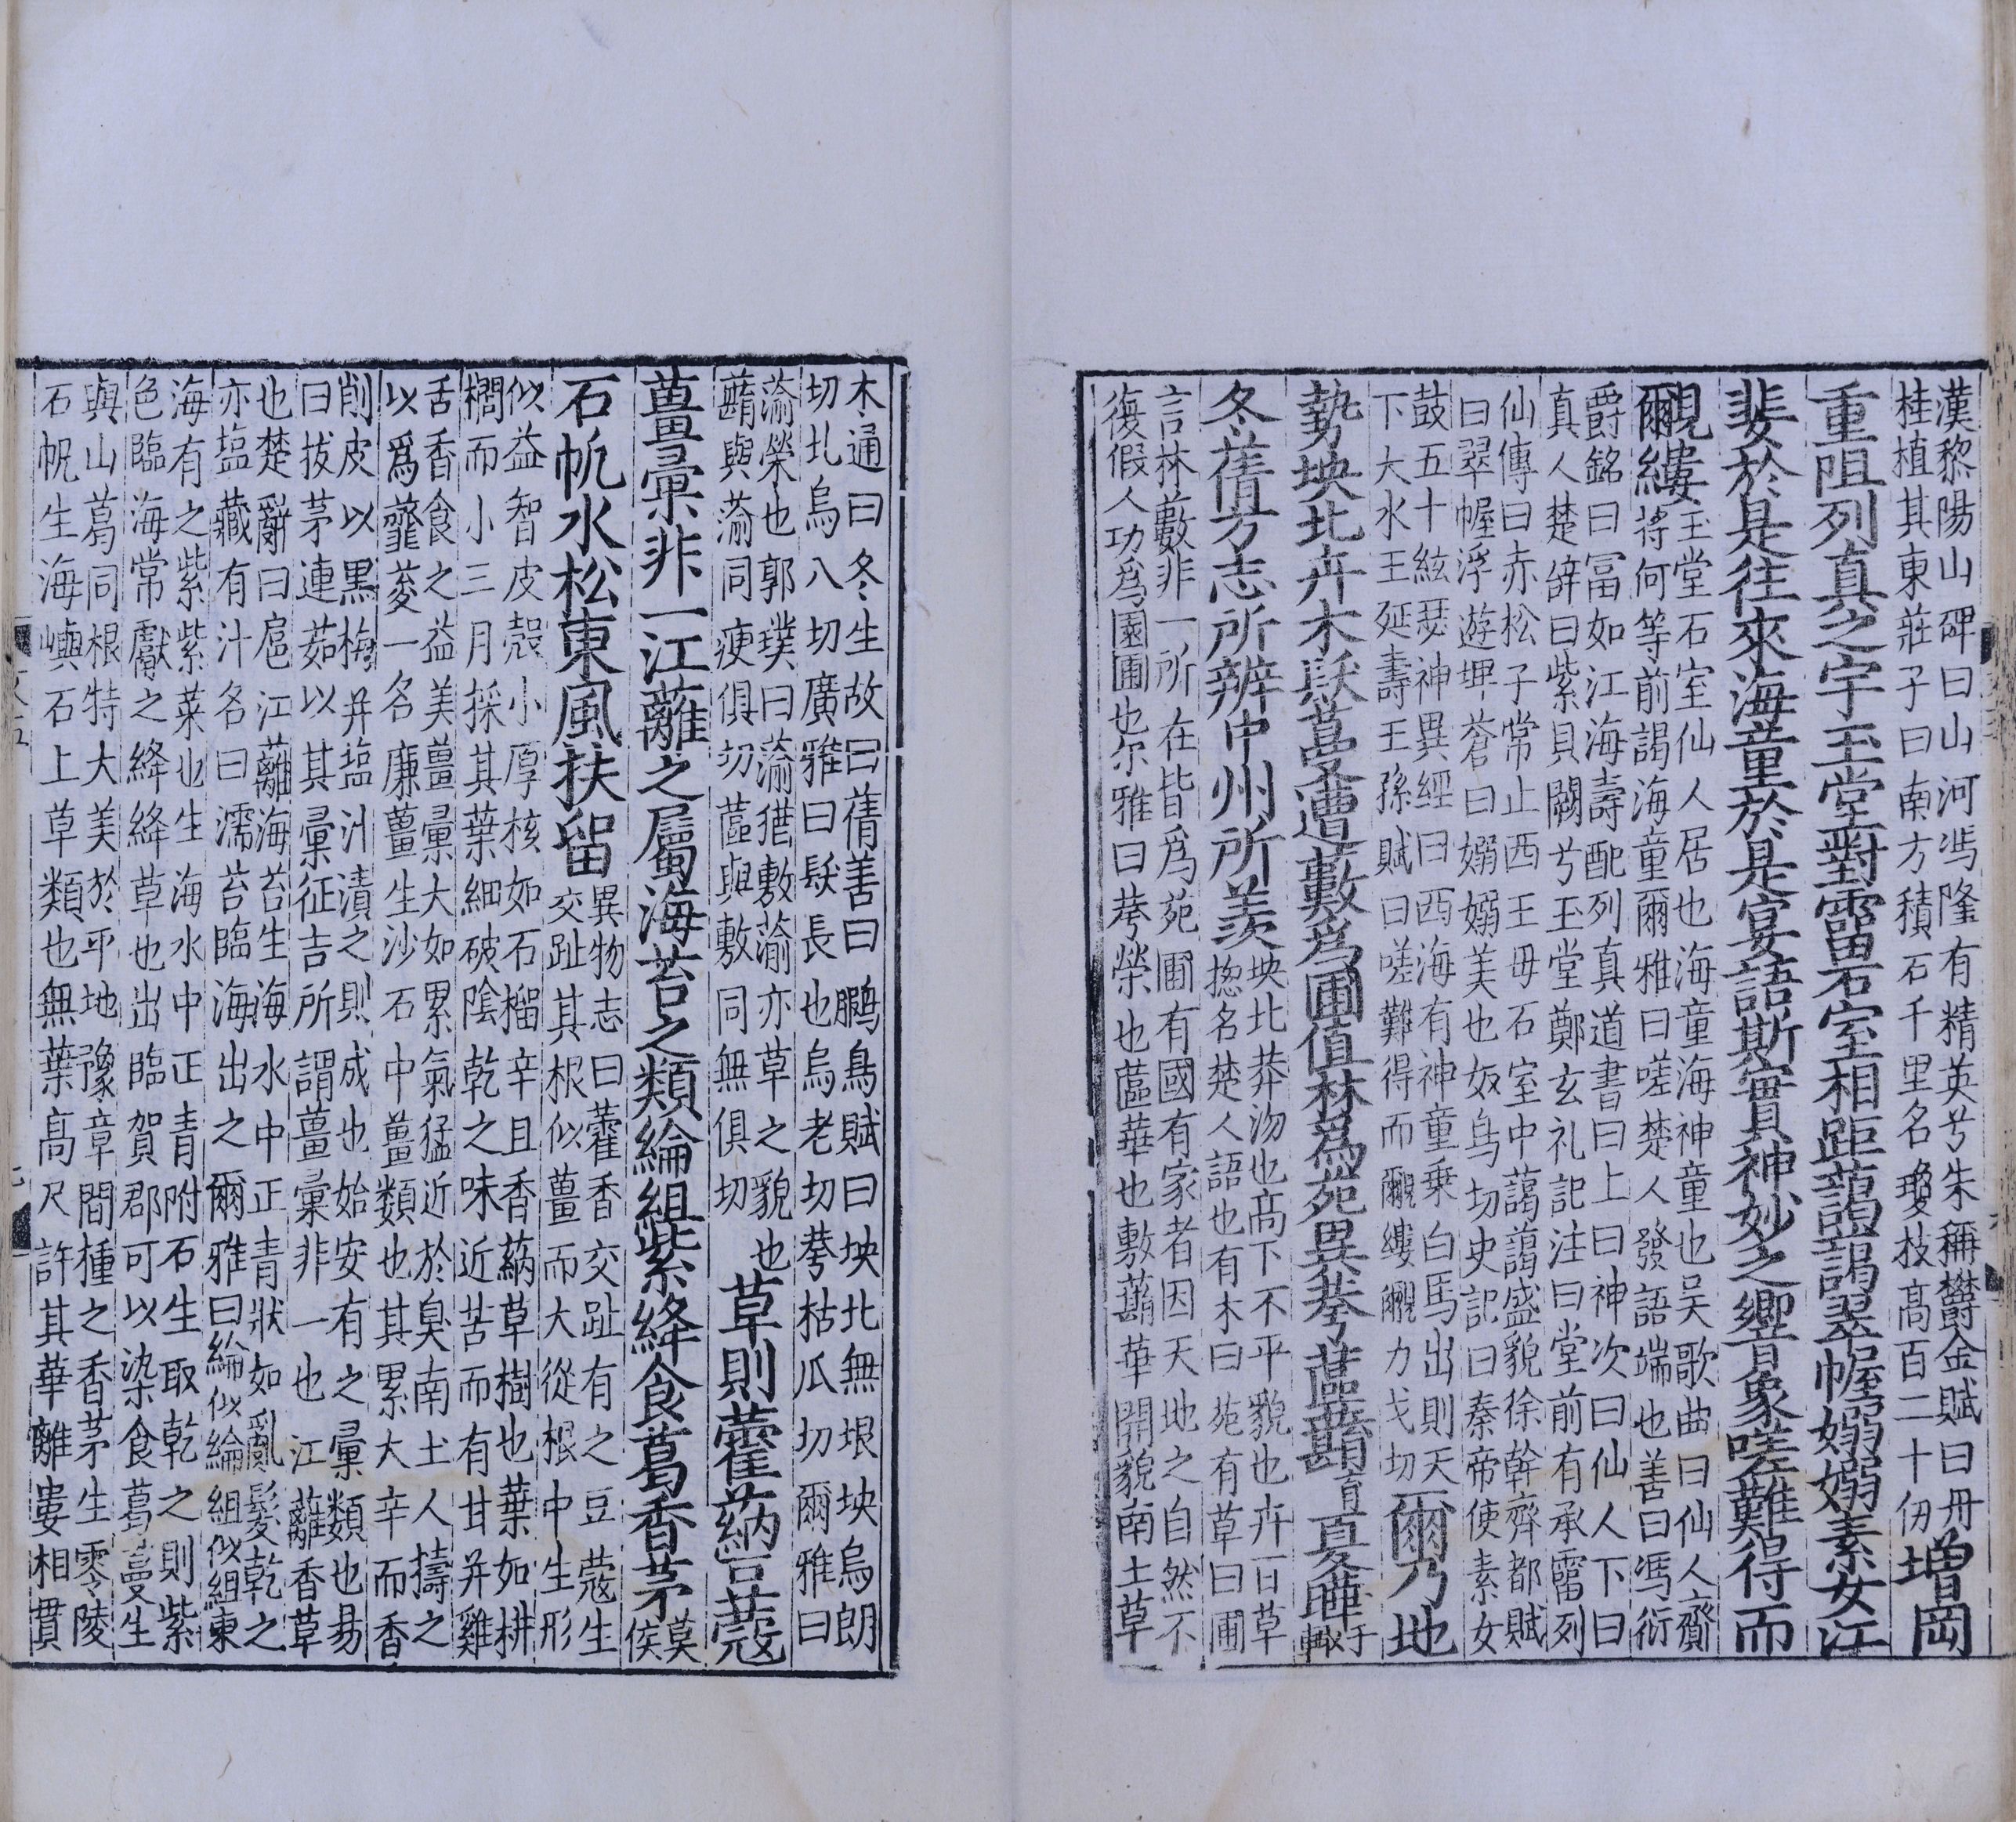 漢黎陽山碑曰山河馮隆有精英兮朱稱鬱金賦曰丹
桂植其東莊子曰南方積石千里名瓊枝高百二十仞增岡
重阻列真之宇玉堂對霤石室相距藹藹翠幄嫋嫋素女江
婓於是往來海童於是宴語斯實神妙之響象嗟難得而
覼縷玉堂石室仙人居也海童海神童也吳歌曲曰仙人齎
將何等前謁海童爾雅曰嗟楚人發語端也善曰馮衍
爵銘曰冨如江海壽配列真道書曰上曰神次曰仙人下曰
真人楚辞曰紫貝闕兮玉堂鄭玄礼記注曰堂前有承霤列
仙傳曰赤松子常止西王母石室中藹藹盛貌徐幹齊都賦
曰翠幄浮遊埤蒼曰嫋嫋美也奴鳥切史記曰秦帝使素女
鼓五十絃瑟神異經曰西海有神童乗白馬出則天
下大水王延壽王孫賦曰嗟難得而覼縷覼力戈切爾乃地
勢坱圠卉木镺蔓遭藪為圃值林為苑異荂蓲蘛育夏曄于輒
冬蒨方志所辨中州所羨坱圠莽沕也高下不平貌也卉百草
揔名楚人語也有木曰苑有草曰圃
言林藪非一所在皆為苑圃有國有家者因天地之自然不
復假人功為園圃也尔雅曰荂榮也蓲華也敷蘛華開貌南土草
木通曰冬生故曰蒨善曰鵩鳥賦曰坱圠無垠坱烏朗
切圠烏八切廣雅曰镺長也烏老切荂枯瓜切爾雅曰
蕍榮也郭璞曰蕍猶敷蕍亦草之貌也
蘛與蕍同庾俱切蓲與敷同無俱切草則藿蒳豆蔻
薑彙非一江蘺之屬海苔之類綸組紫絳食葛香茅莫侯
石帆水松東風扶留異物志曰藿香交趾有之豆蔻生
交趾其根似薑而大從根中生形
似益智皮殼小厚核如石榴辛且香蒳草樹也葉如栟
櫚而小三月採其葉細破陰乾之味近苦而有甘并雞
舌香食之益美薑彙大如累氣猛近於臭南土人擣之
以為虀菱一名廉薑生沙石中薑類也其累大辛而香
削皮以黑梅并塩汁漬之則成也始安有之彙類也易
曰拔茅連茹以其彙征吉所謂薑彙非一也江蘺香草
也楚辭曰扈江蘺海苔生海水中正青狀如亂髮乾之
亦塩藏有汁名曰濡苔臨海出之爾雅曰綸似綸組似組東
海有之紫紫菜也生海水中正青附石生取乾之則紫
色臨海常獻之絳絳草也出臨賀郡可以染食葛蔓生
與山葛同根特大美於平地豫章間種之香茅生零陵
石帆生海嶼石上草類也無葉高尺許其華離婁相貫